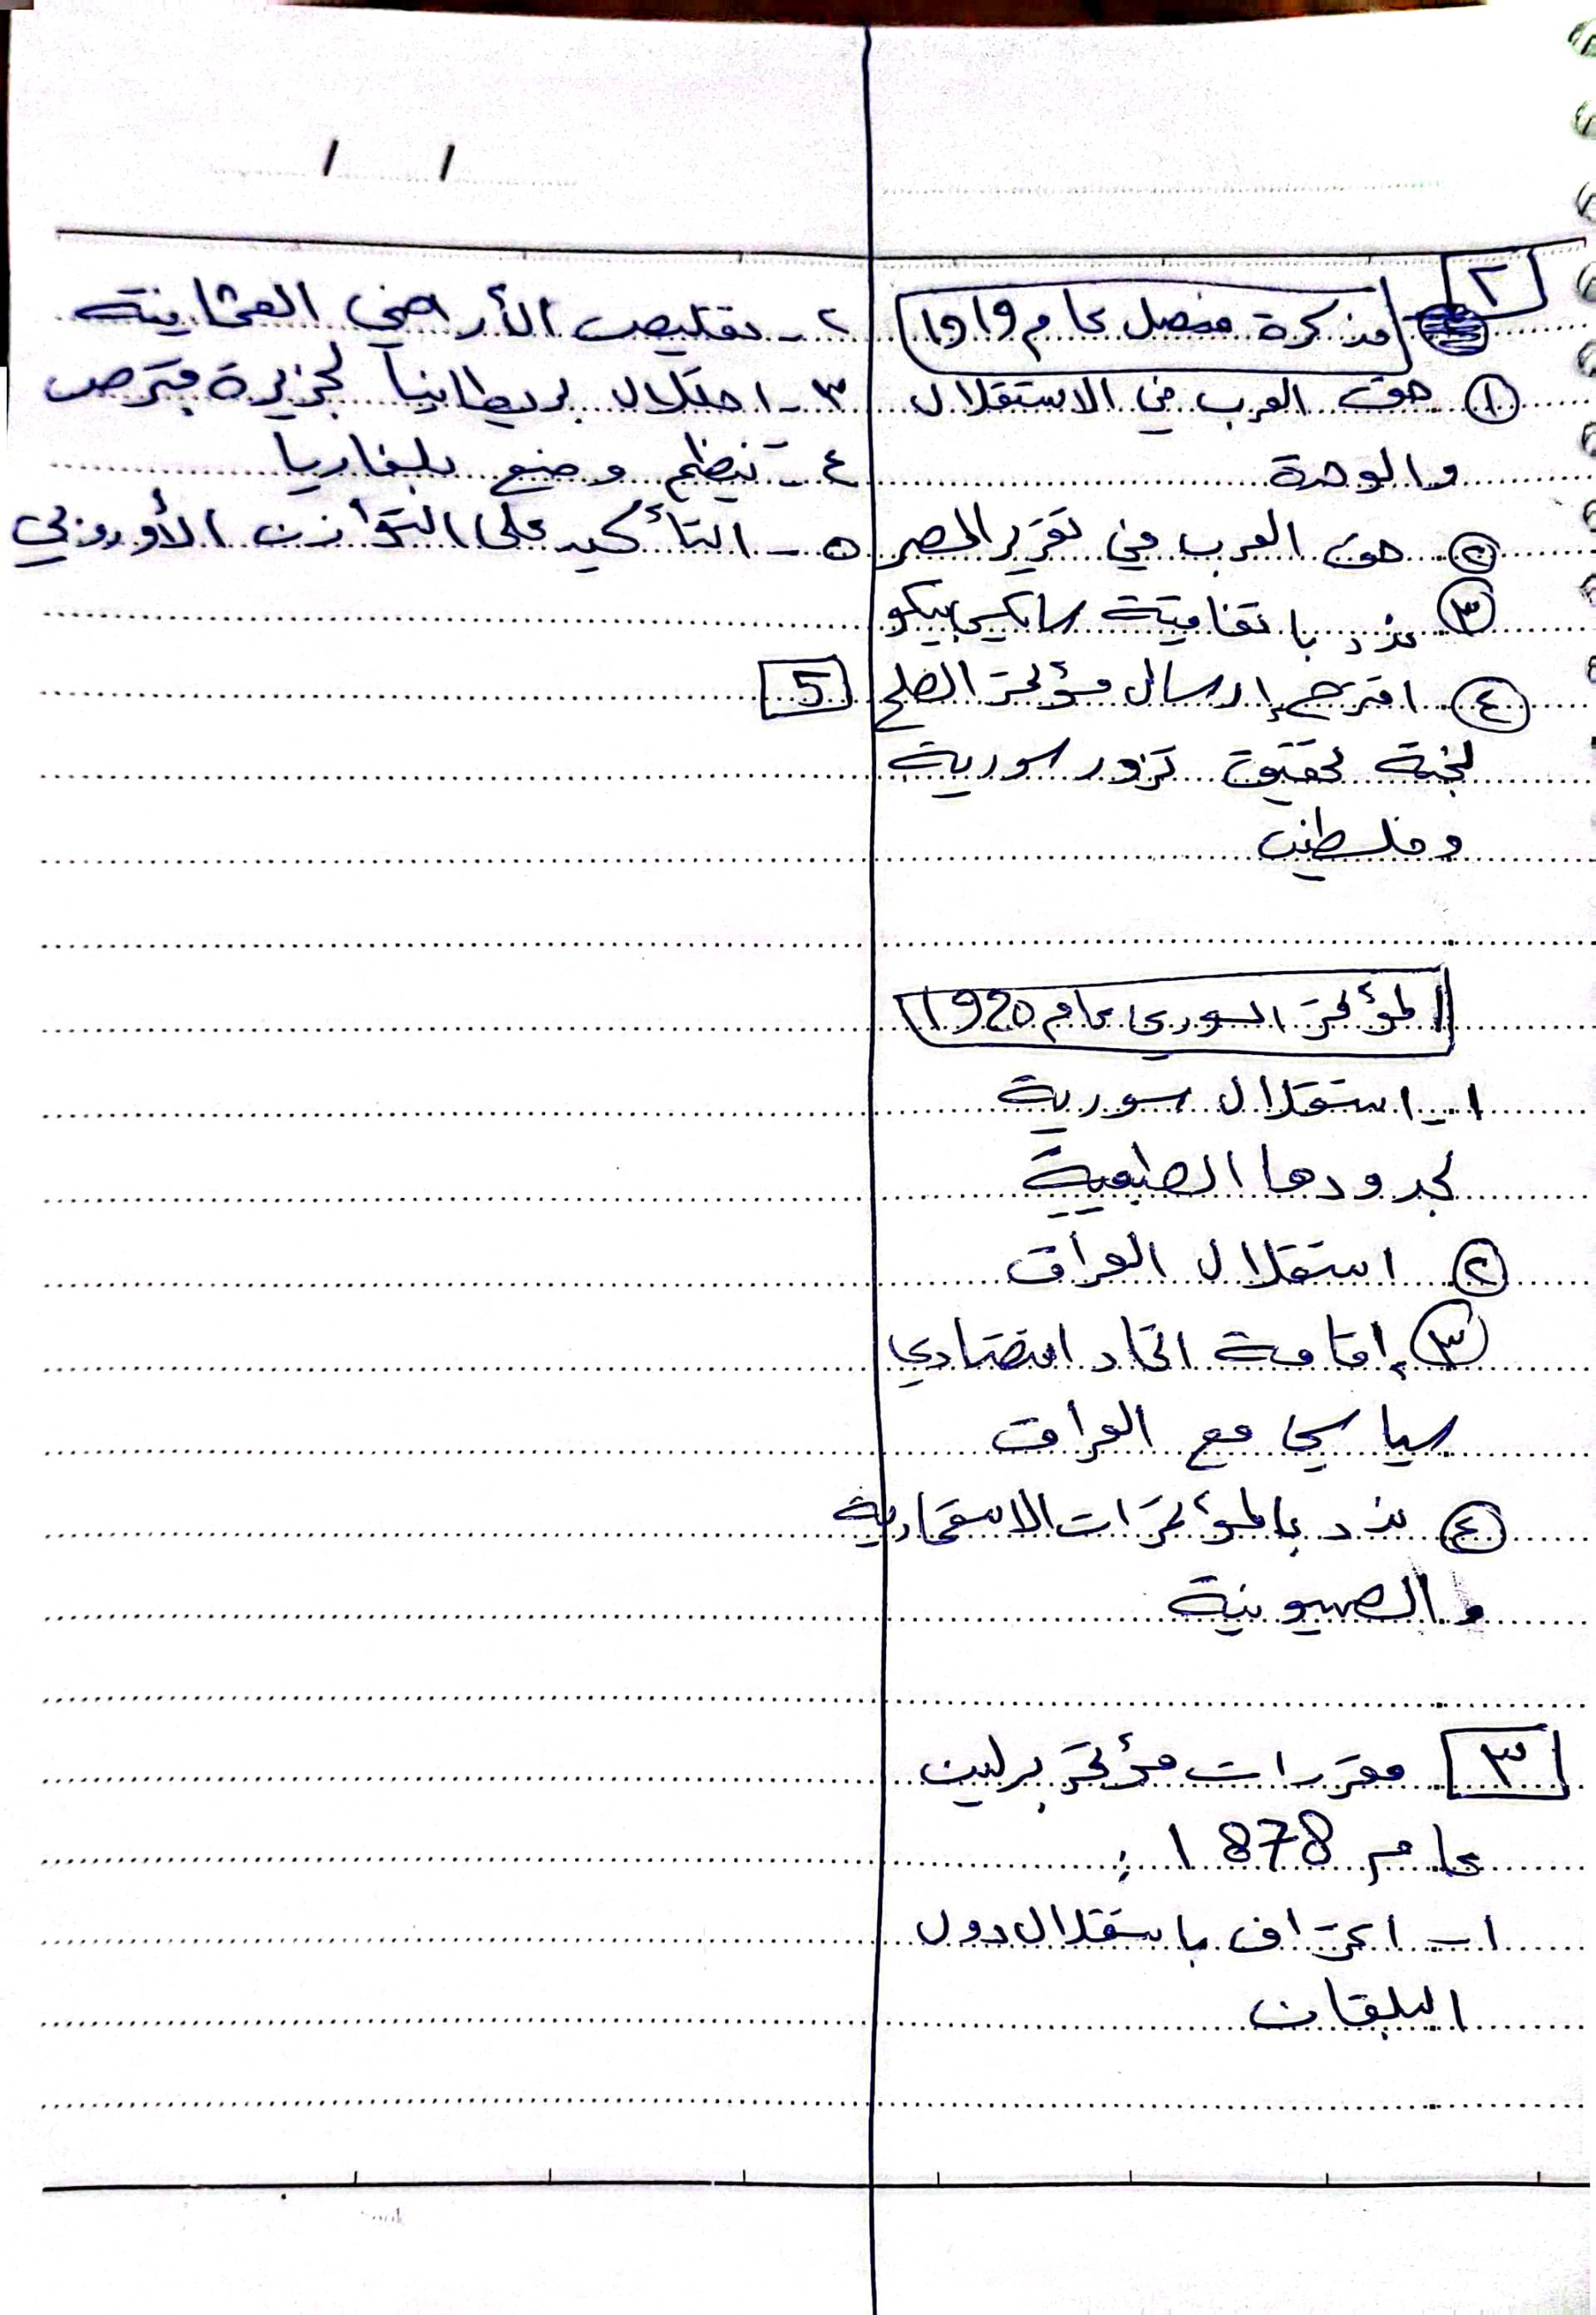 / /
٢
مذكرة فيصل عام 1919
① حق العرب في الاستقلال
والوحدة
② حق العرب في تقرير المصير
③ ندد باتفاقية سايكس بيكو
④ اقترح إرسال مؤتمر الصلح
لجنة تحقيق تزور سورية
وفلسطين
المؤتمر السوري عام 1920
١ـ استقلال سورية
بحدودها الطبيعية
② استقلال العراق
③ إقامة اتحاد اقتصادي
سياسي مع العراق
④ ندد بالمؤتمرات الاستعمارية
والصهيونية
٣ مقررات مؤتمر برلين
عام 1878 :
١ـ اعتراف باستقلال دول
البلقان
٢ـ تقليص الأراضي العثمانية
٣ـ احتلال بريطانيا لجزيرة قبرص
٤ـ تنظيم وضع بلغاريا
٥ـ التأكيد على التوازن الأوروبي
5